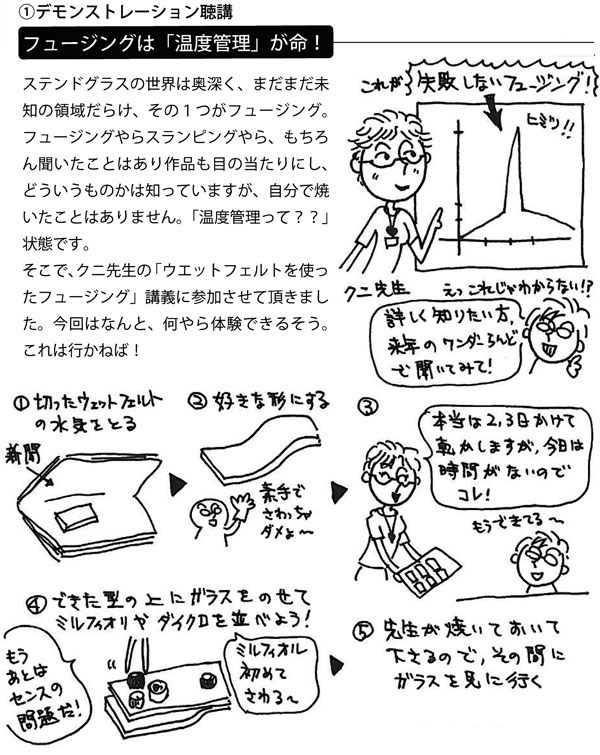 ①デモンストレーション聴講
フュージングは「温度管理」が命！
ステンドグラスの世界は奥深く、まだまだ未
知の領域だらけ、その１つがフュージング。
フュージングやらスランピングやら、もちろ
ん聞いたことはあり作品も目の当たりにし、
どういうものかは知っていますが、自分で焼
いたことはありません。「温度管理って？？」
状態です。
そこで、クニ先生の「ウエットフェルトを使っ
たフュージング」講義に参加させて頂きまし
た。今回はなんと、何やら体験できるそう。
これは行かねば！
これが
失敗しないフュージング！
ヒミツ!!
クニ先生
えっこれじゃわからない!?
詳しく知りたい方、
来年のワンダーらんど
で聞いてみて！
①切ったウェットフェルト
の水気をとる
新聞
②好きな形にする
素手で
さわっちゃ
ダメよ〜
③
本当は2,3日かけて
乾かしますが、今日は
時間がないので
コレ！
もうできてる〜
④できた型の上にガラスをのせて
ミルフィオリや ダイクロを並べよう！
もう
あとは
センスの
問題だ！
ミルフィオリ
初めて
さわる〜
⑤先生が焼いておいて
下さるので、その間に
ガラスを見に行く